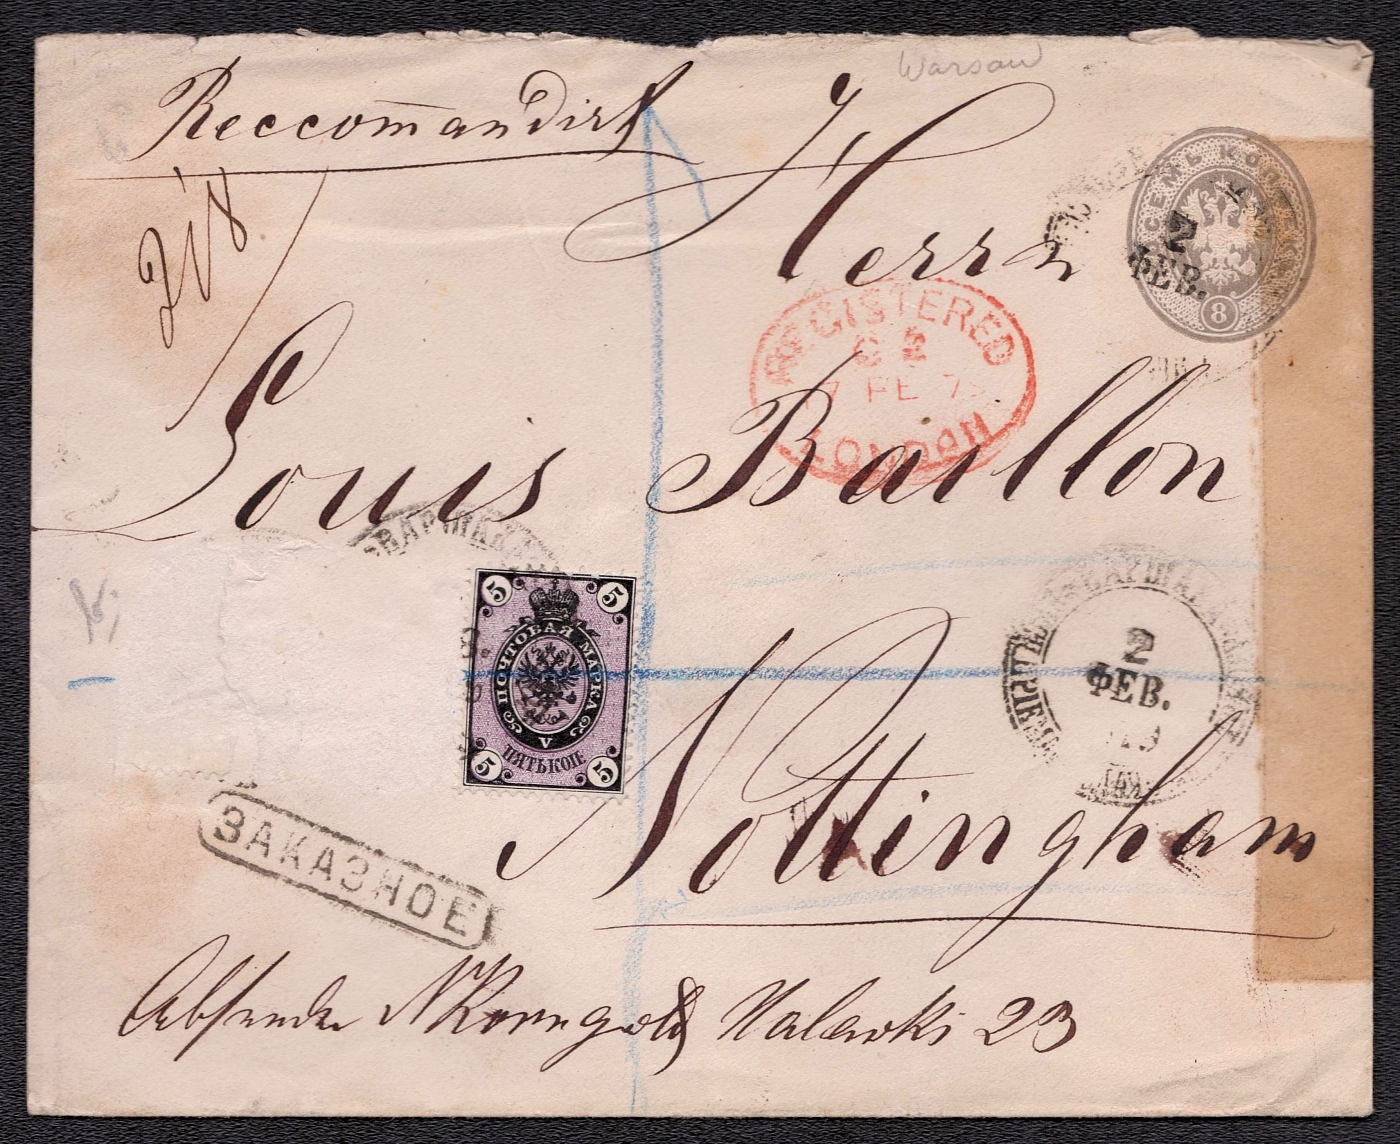 Warsaw
Reccom̄andirt
218
Herrn
СЕМЬ КОП
8
2
ФЕВ.
REGISTERED
7 FE 7
LONDON
Louis Baillon
ВАРШАВА
5 5
ПОЧТОВАЯ МАРКА
V
ПЯТЬ КОП.
5 5
ВАРШАВА
2
ФЕВ.
Nottingham
ЗАКАЗНОЕ
Absender N Korngold Nalewki 23